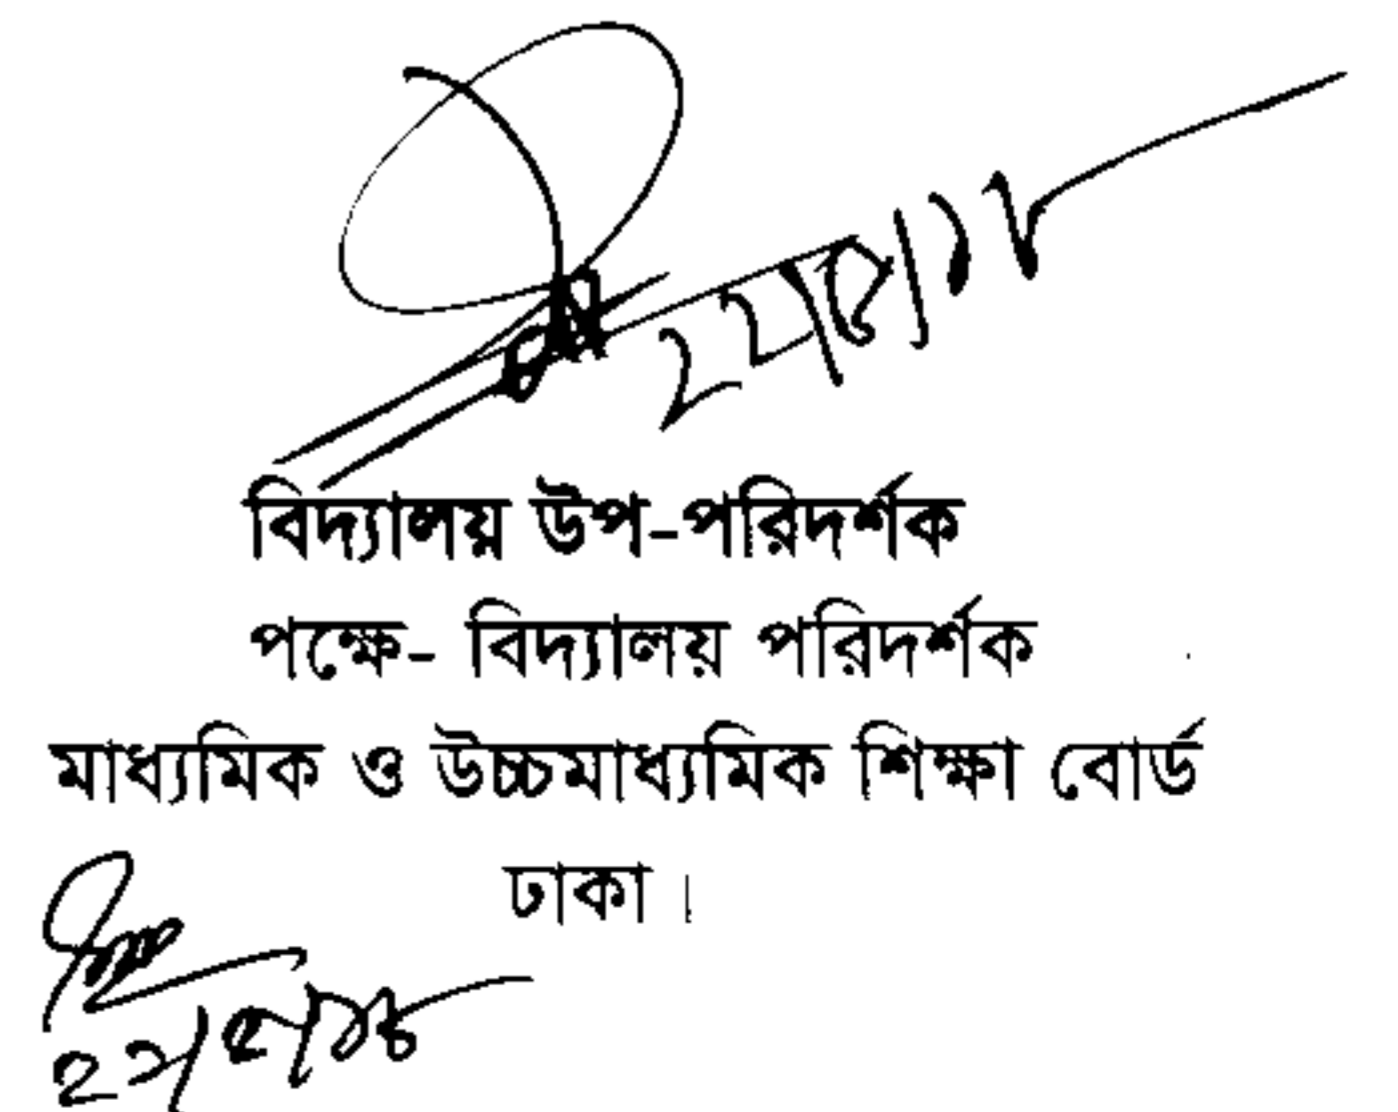 ২২/৫/১৮
বিদ্যালয় উপ-পরিদর্শক
পক্ষে- বিদ্যালয় পরিদর্শক
মাধ্যমিক ও উচ্চমাধ্যমিক শিক্ষা বোর্ড
ঢাকা।